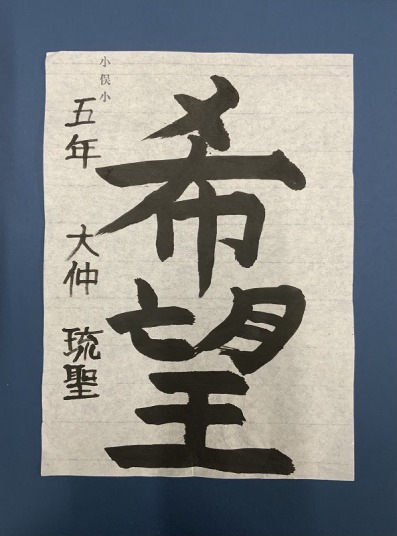 希望
小俣小
五年 大仲 琉聖